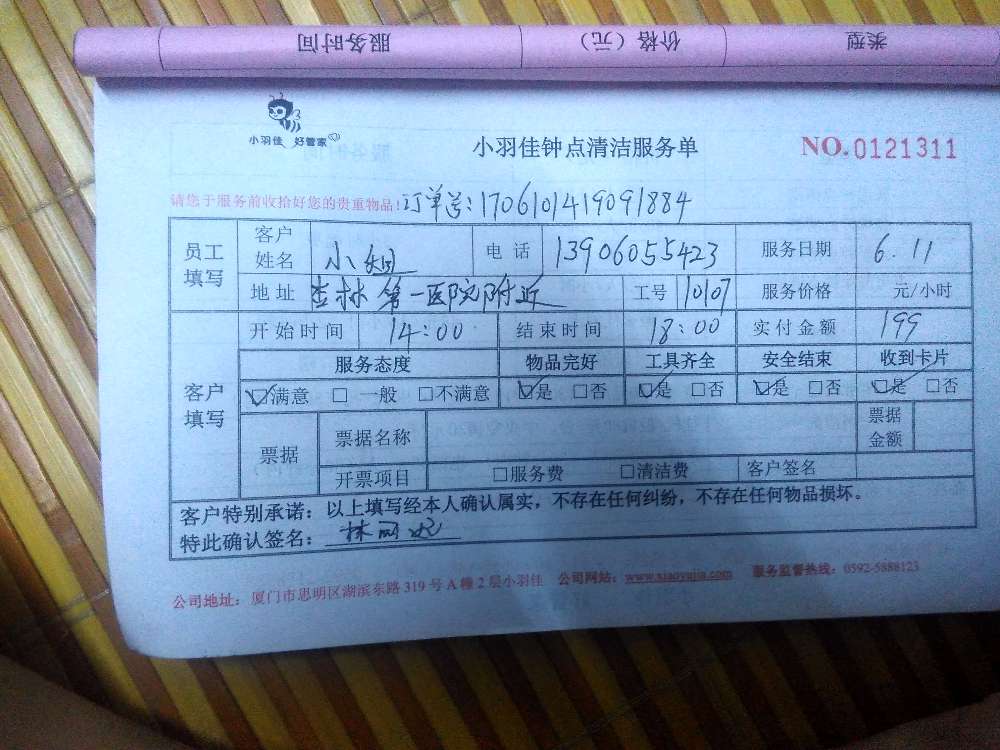 服务时间 价格（元） 类型
小羽佳 好管家
小羽佳钟点清洁服务单 NO.0121311
请您于服务前收拾好您的贵重物品! 订单号:1706101419091884
员工填写 客户姓名 小姐 电话 13906055423 服务日期 6.11
地址 杏林第一医院附近 工号 10107 服务价格 元/小时
客户填写 开始时间 14:00 结束时间 18:00 实付金额 199
服务态度 物品完好 工具齐全 安全结束 收到卡片
☑满意 □ 一般 □不满意 ☑是 □否 ☑是 □否 ☑是 □否 ☑是 □否
票据 票据名称 票据金额
开票项目 □服务费 □清洁费 客户签名
客户特别承诺：以上填写经本人确认属实，不存在任何纠纷，不存在任何物品损坏。
特此确认签名：林
公司地址：厦门市思明区湖滨东路 319 号 A 幢 2 层小羽佳 公司网站：www.xiaoyujia.com 服务监督热线：0592-5888123